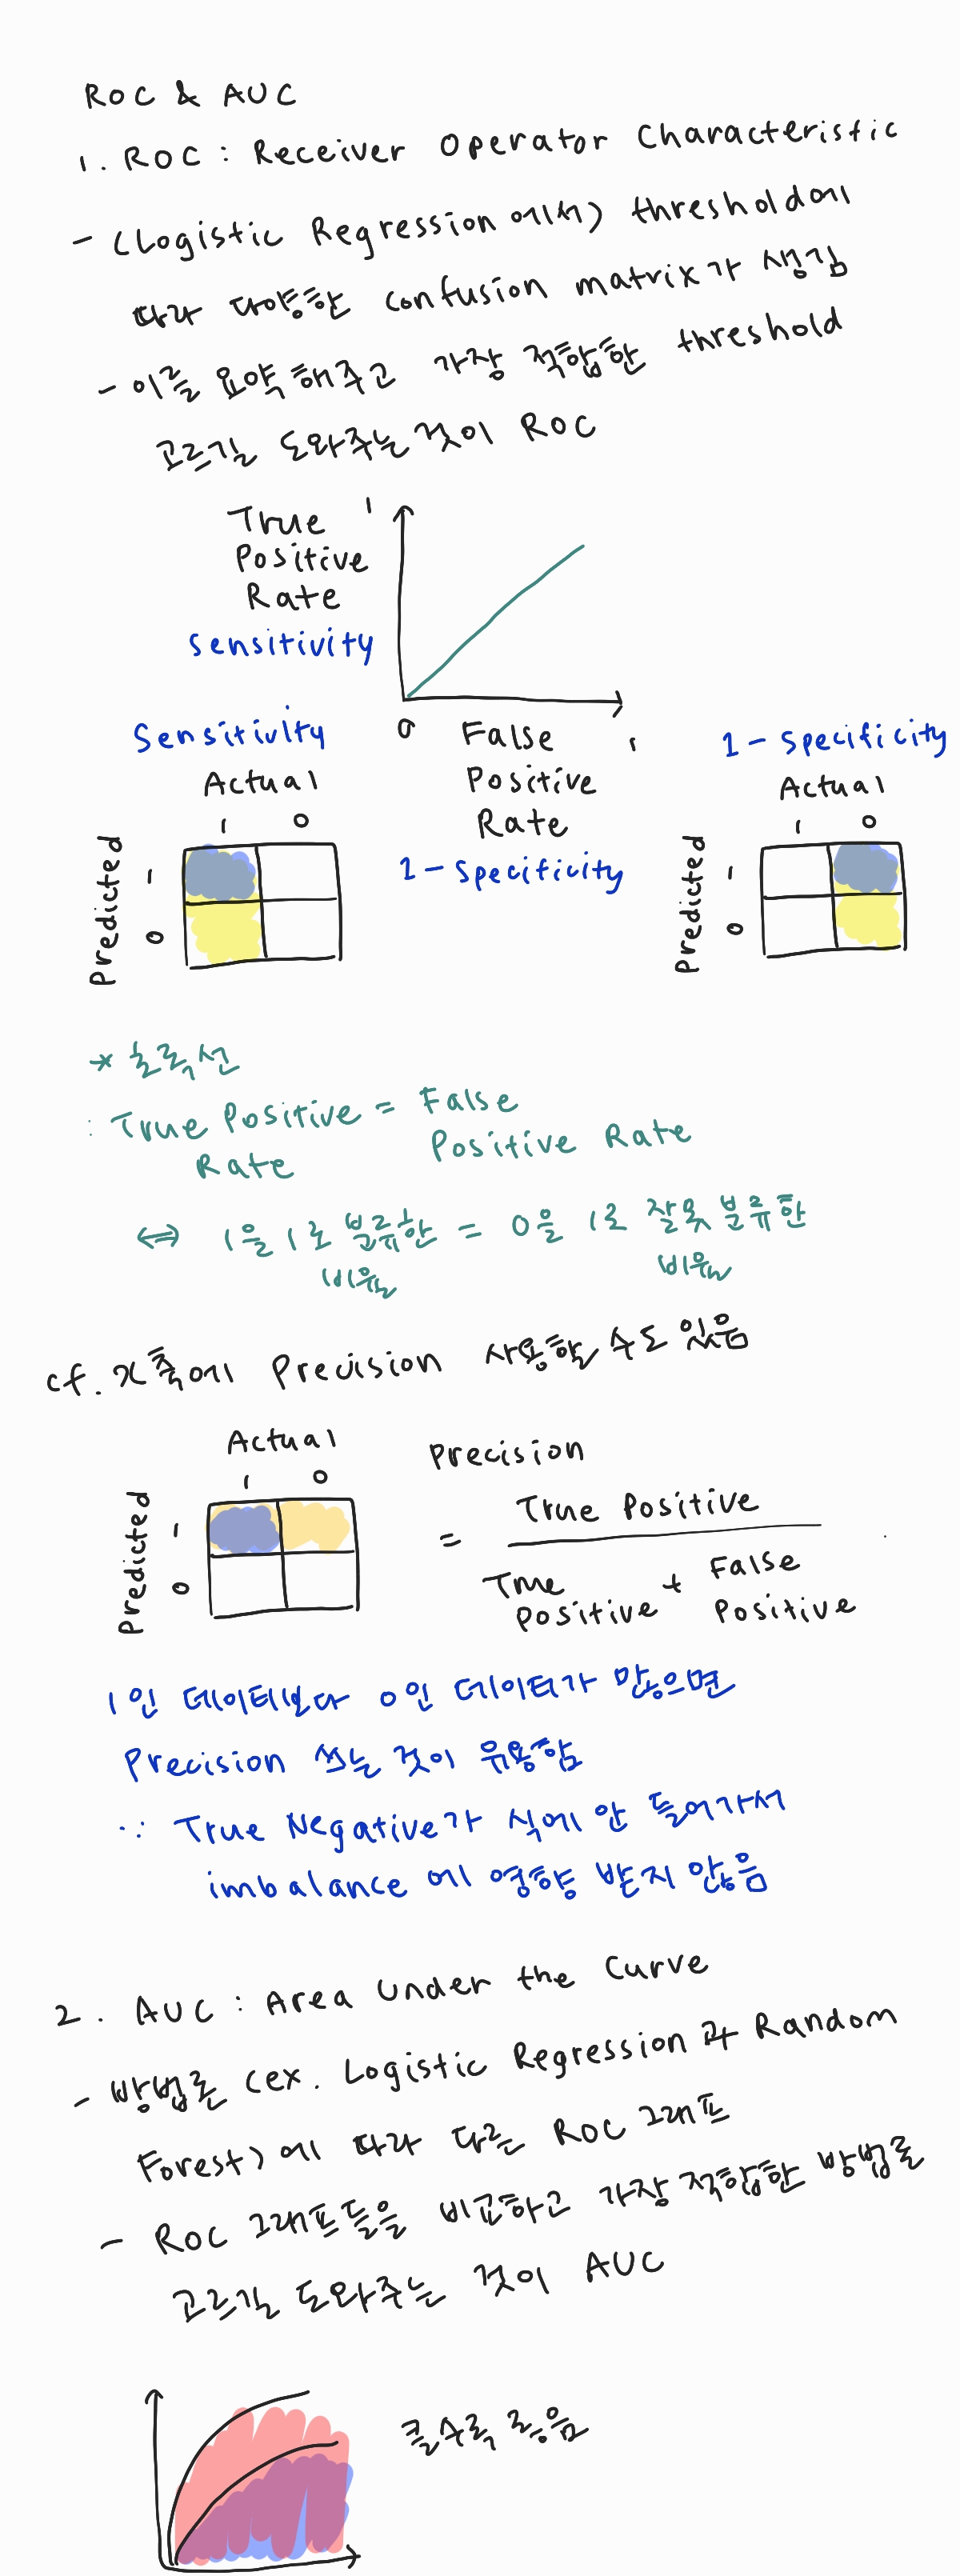 ROC & AUC
1. ROC : Receiver Operator Characteristic
- (Logistic Regression에서) threshold에
따라 다양한 confusion matrix가 생김
- 이를 요약해주고 가장 적합한 threshold
고르길 도와주는 것이 ROC
True
Positive
Rate
Sensitivity
1
0
False
Positive
Rate
1
1 - Specificity
Sensitivity
Actual
1 0
Predicted
1
0
1 - Specificity
Actual
1 0
Predicted
1
0
* 초록선
: True Positive = False
Rate Positive Rate
⟺ 1을 1로 분류한 = 0을 1로 잘못 분류한
비율 비율
cf. x축에 Precision 사용할 수도 있음
Actual
1 0
Predicted
1
0
Precision
= True Positive
True Positive + False Positive
1인 데이터보다 0인 데이터가 많으면
Precision 쓰는 것이 유용함
∵ True Negative가 식에 안 들어가서
imbalance에 영향 받지 않음
2. AUC : Area Under the Curve
- 방법론 (ex. Logistic Regression과 Random
Forest)에 따라 다른 ROC 그래프
- ROC 그래프들을 비교하고 가장 적합한 방법론
고르길 도와주는 것이 AUC
클수록 좋음